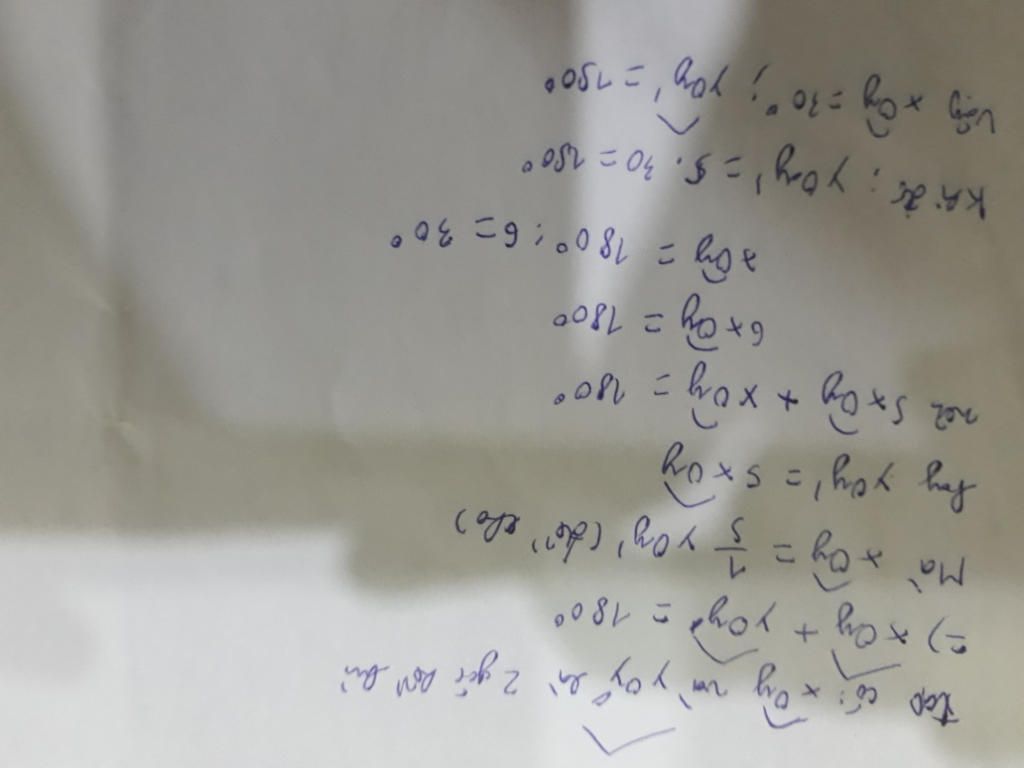 Ta có: xOy và yOy' là 2 góc kề bù
=) xOy + yOy' = 180°
Mà xOy = 1/5 yOy' (đề cho)
hay yOy' = 5 xOy
nên 5xOy + xOy = 180°
6xOy = 180°
xOy = 180° : 6 = 30°
Khi đó: yOy' = 5. 30 = 150°
Vậy xOy = 30° ; yOy' = 150°